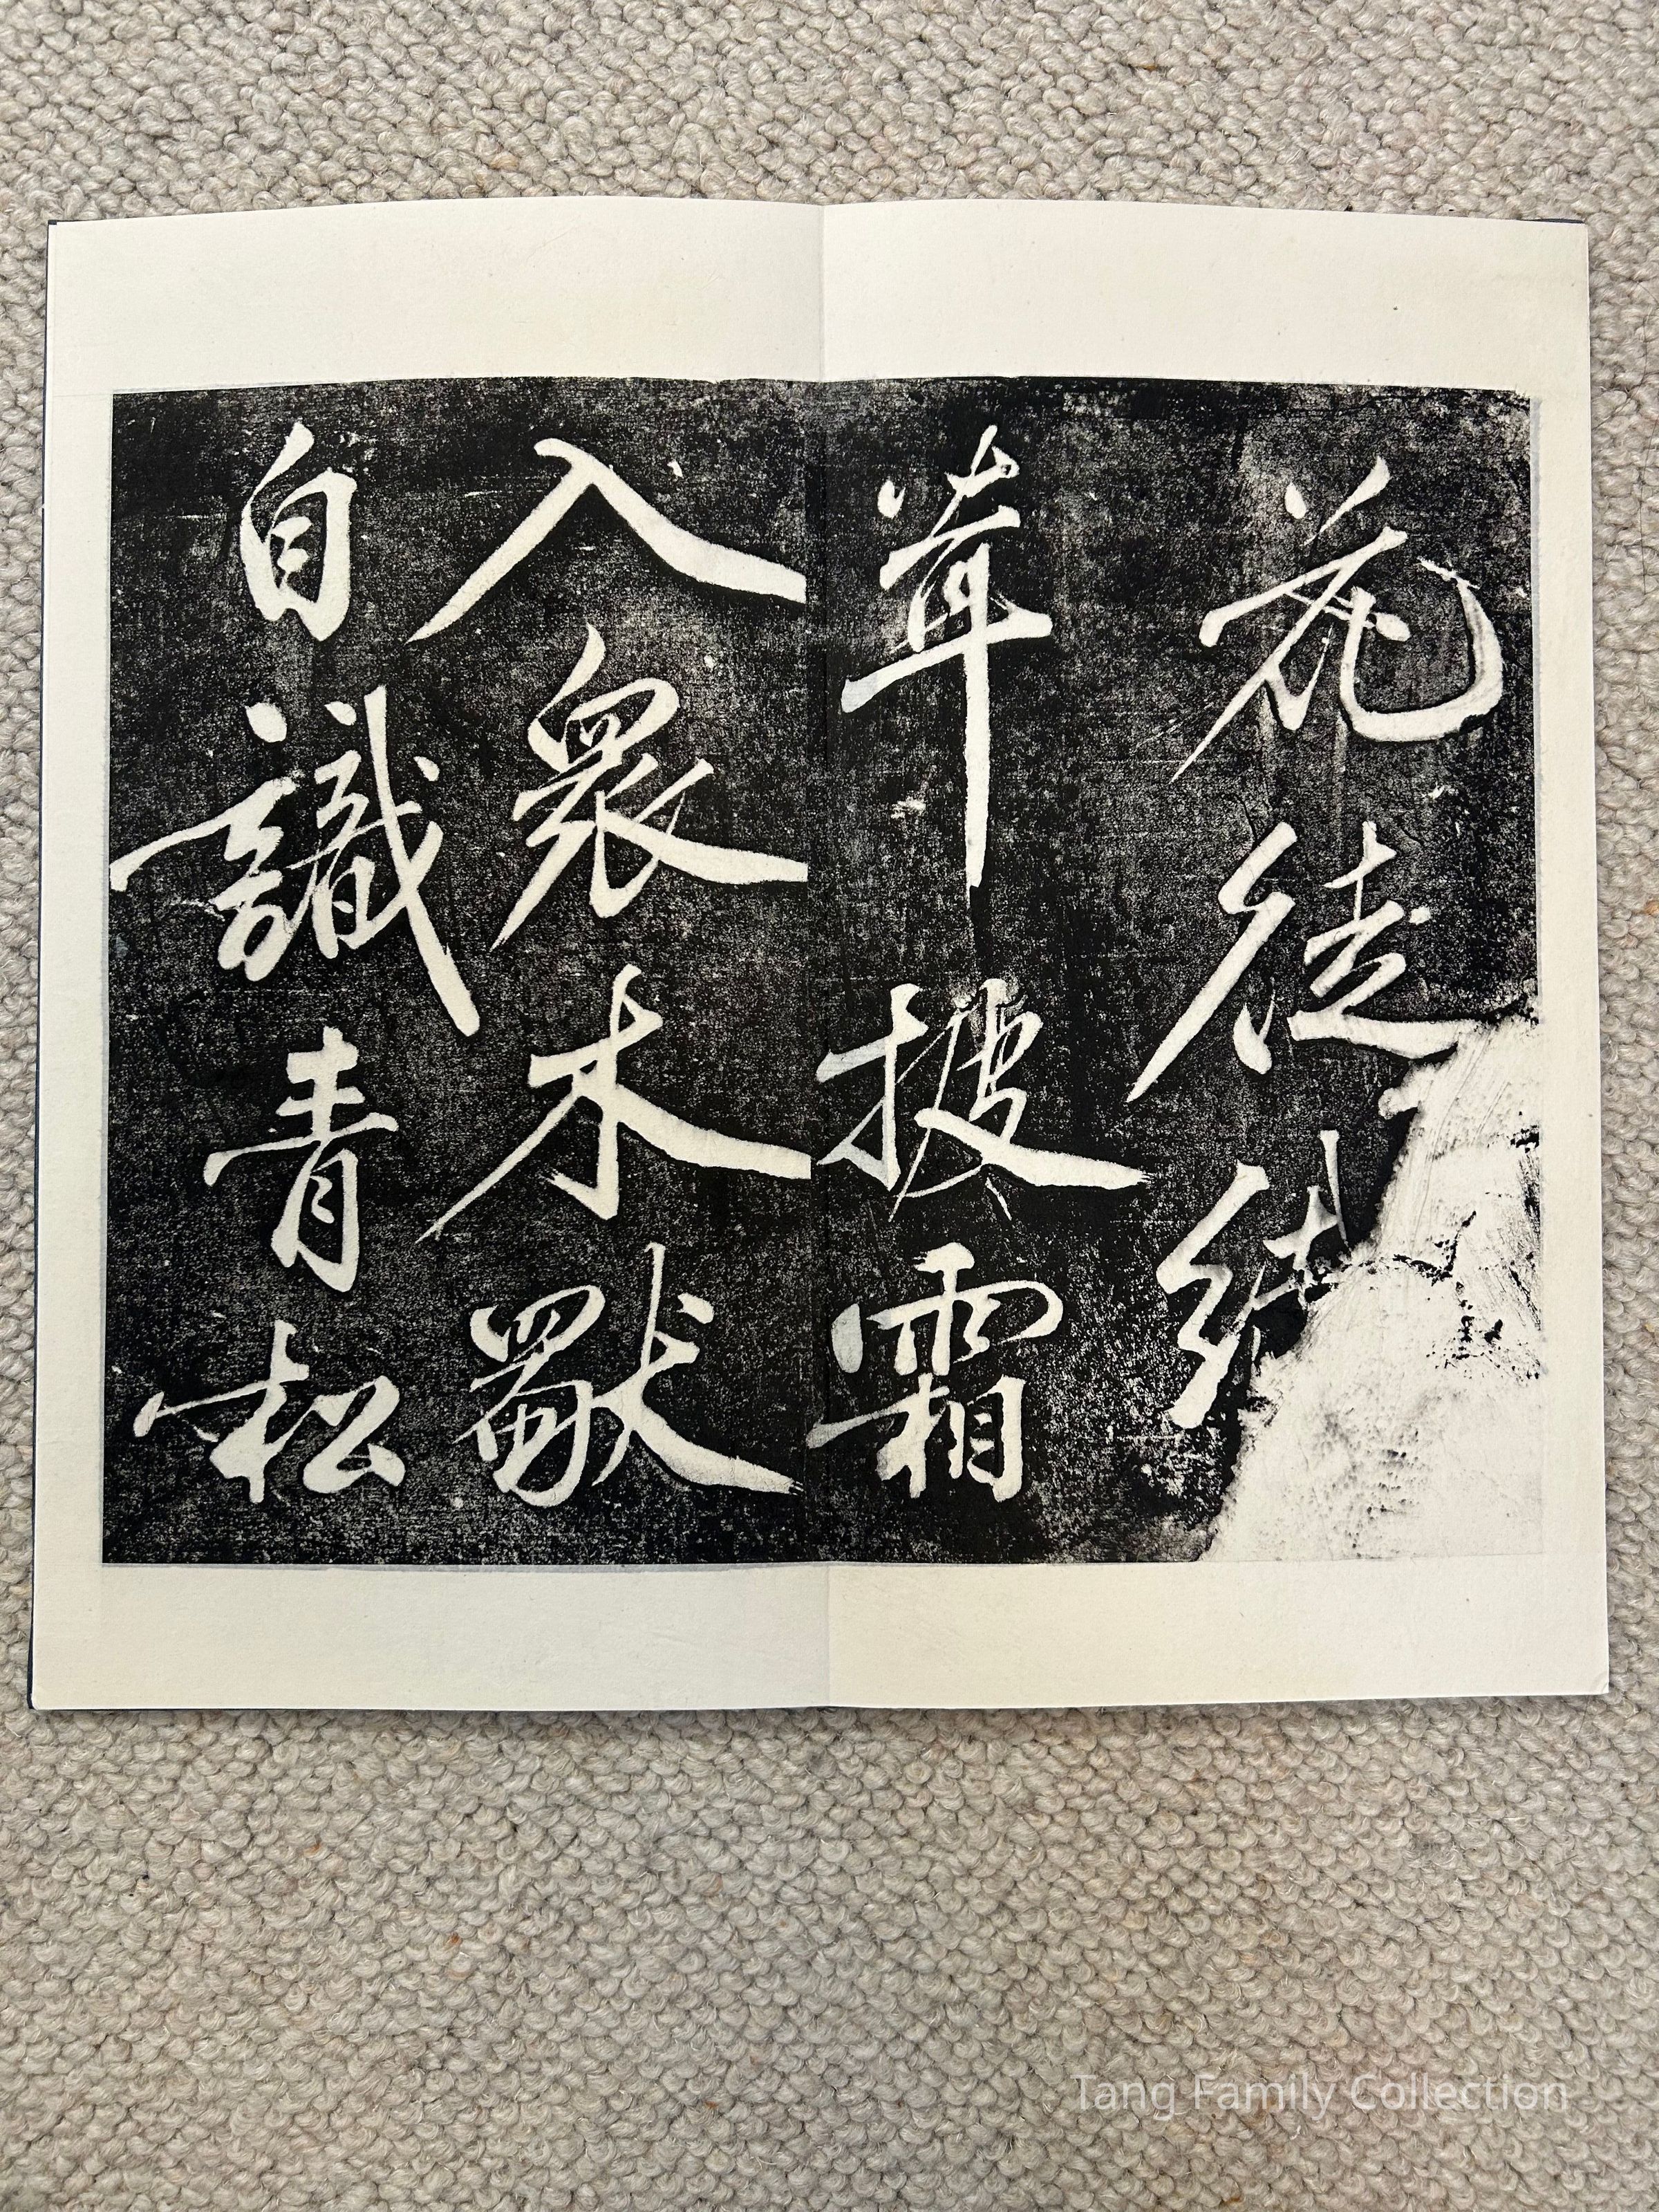 花徒
茸披霜
入衆木獸
自識青松
Tang Family Collection